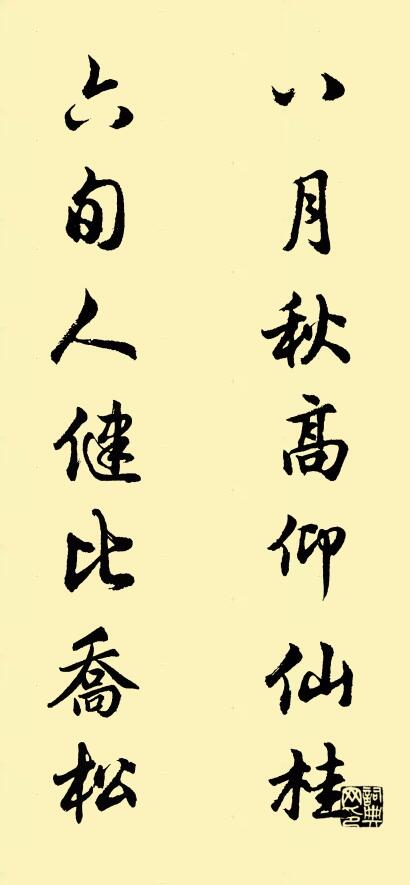 八月秋高仰仙桂
六旬人健比喬松